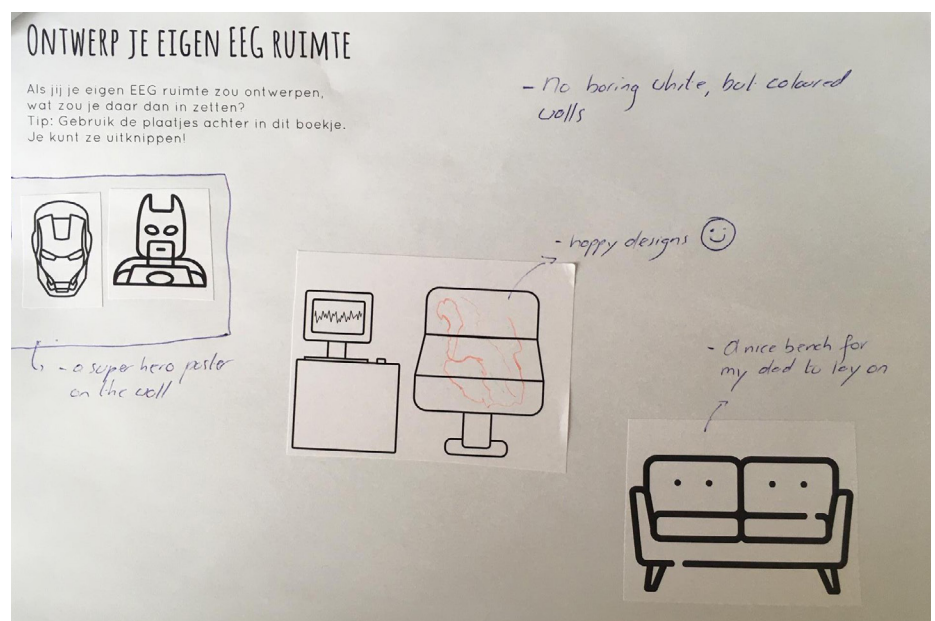 ONTWERP JE EIGEN EEG RUIMTE
Als jij je eigen EEG ruimte zou ontwerpen,
wat zou je daar dan in zetten?
Tip: Gebruik de plaatjes achter in dit boekje.
Je kunt ze uitknippen!
- No boring white, but coloured
walls
- happy designs
- a super hero poster
on the wall
- A nice bench for
my dad to lay on